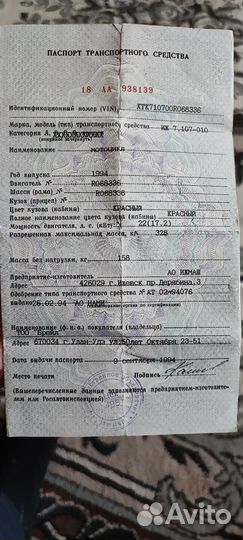 ПАСПОРТ ТРАНСПОРТНОГО СРЕДСТВА
18 АА 938139
Идентификационный номер (VIN) XTK710700R068336
Марка, модель (тип) транспортного средства ИЖ 7.107-010
Категория А.
(ненужное зачеркнуть)
Наименование мотоцикл
Год выпуска 1994
Двигатель № R068336
Масси (рама) № R068336
Кузов (прицеп) №
Цвет кузова (кабины) КРАСНЫЙ
Полное наименование цвета кузова (кабины) КРАСНЫЙ
Мощность двигателя, л. с. (кВт) 22(17.2)
Разрешенная максимальная масса, кг 328
Масса без нагрузки, кг 158
Предприятие-изготовитель АО ИЖМАШ
Адрес 426029 г.Ижевск пр.Дерябина.3
Одобрение типа транспортного средства № АТ 02*94076
25.02.94 АО НАМИ
Наименование (ф. и. о.) покупателя (владельца)
ТОО
Адрес 670034 г.Улан-Удэ ул.50лет Октября 23-51
Дата выдачи паспорта 9 сентября 1994
Место печати Подпись
(Вышеперечисленные данные заполняются предприятием-изготовите-
лем или Госавтоинспекцией)
Avito